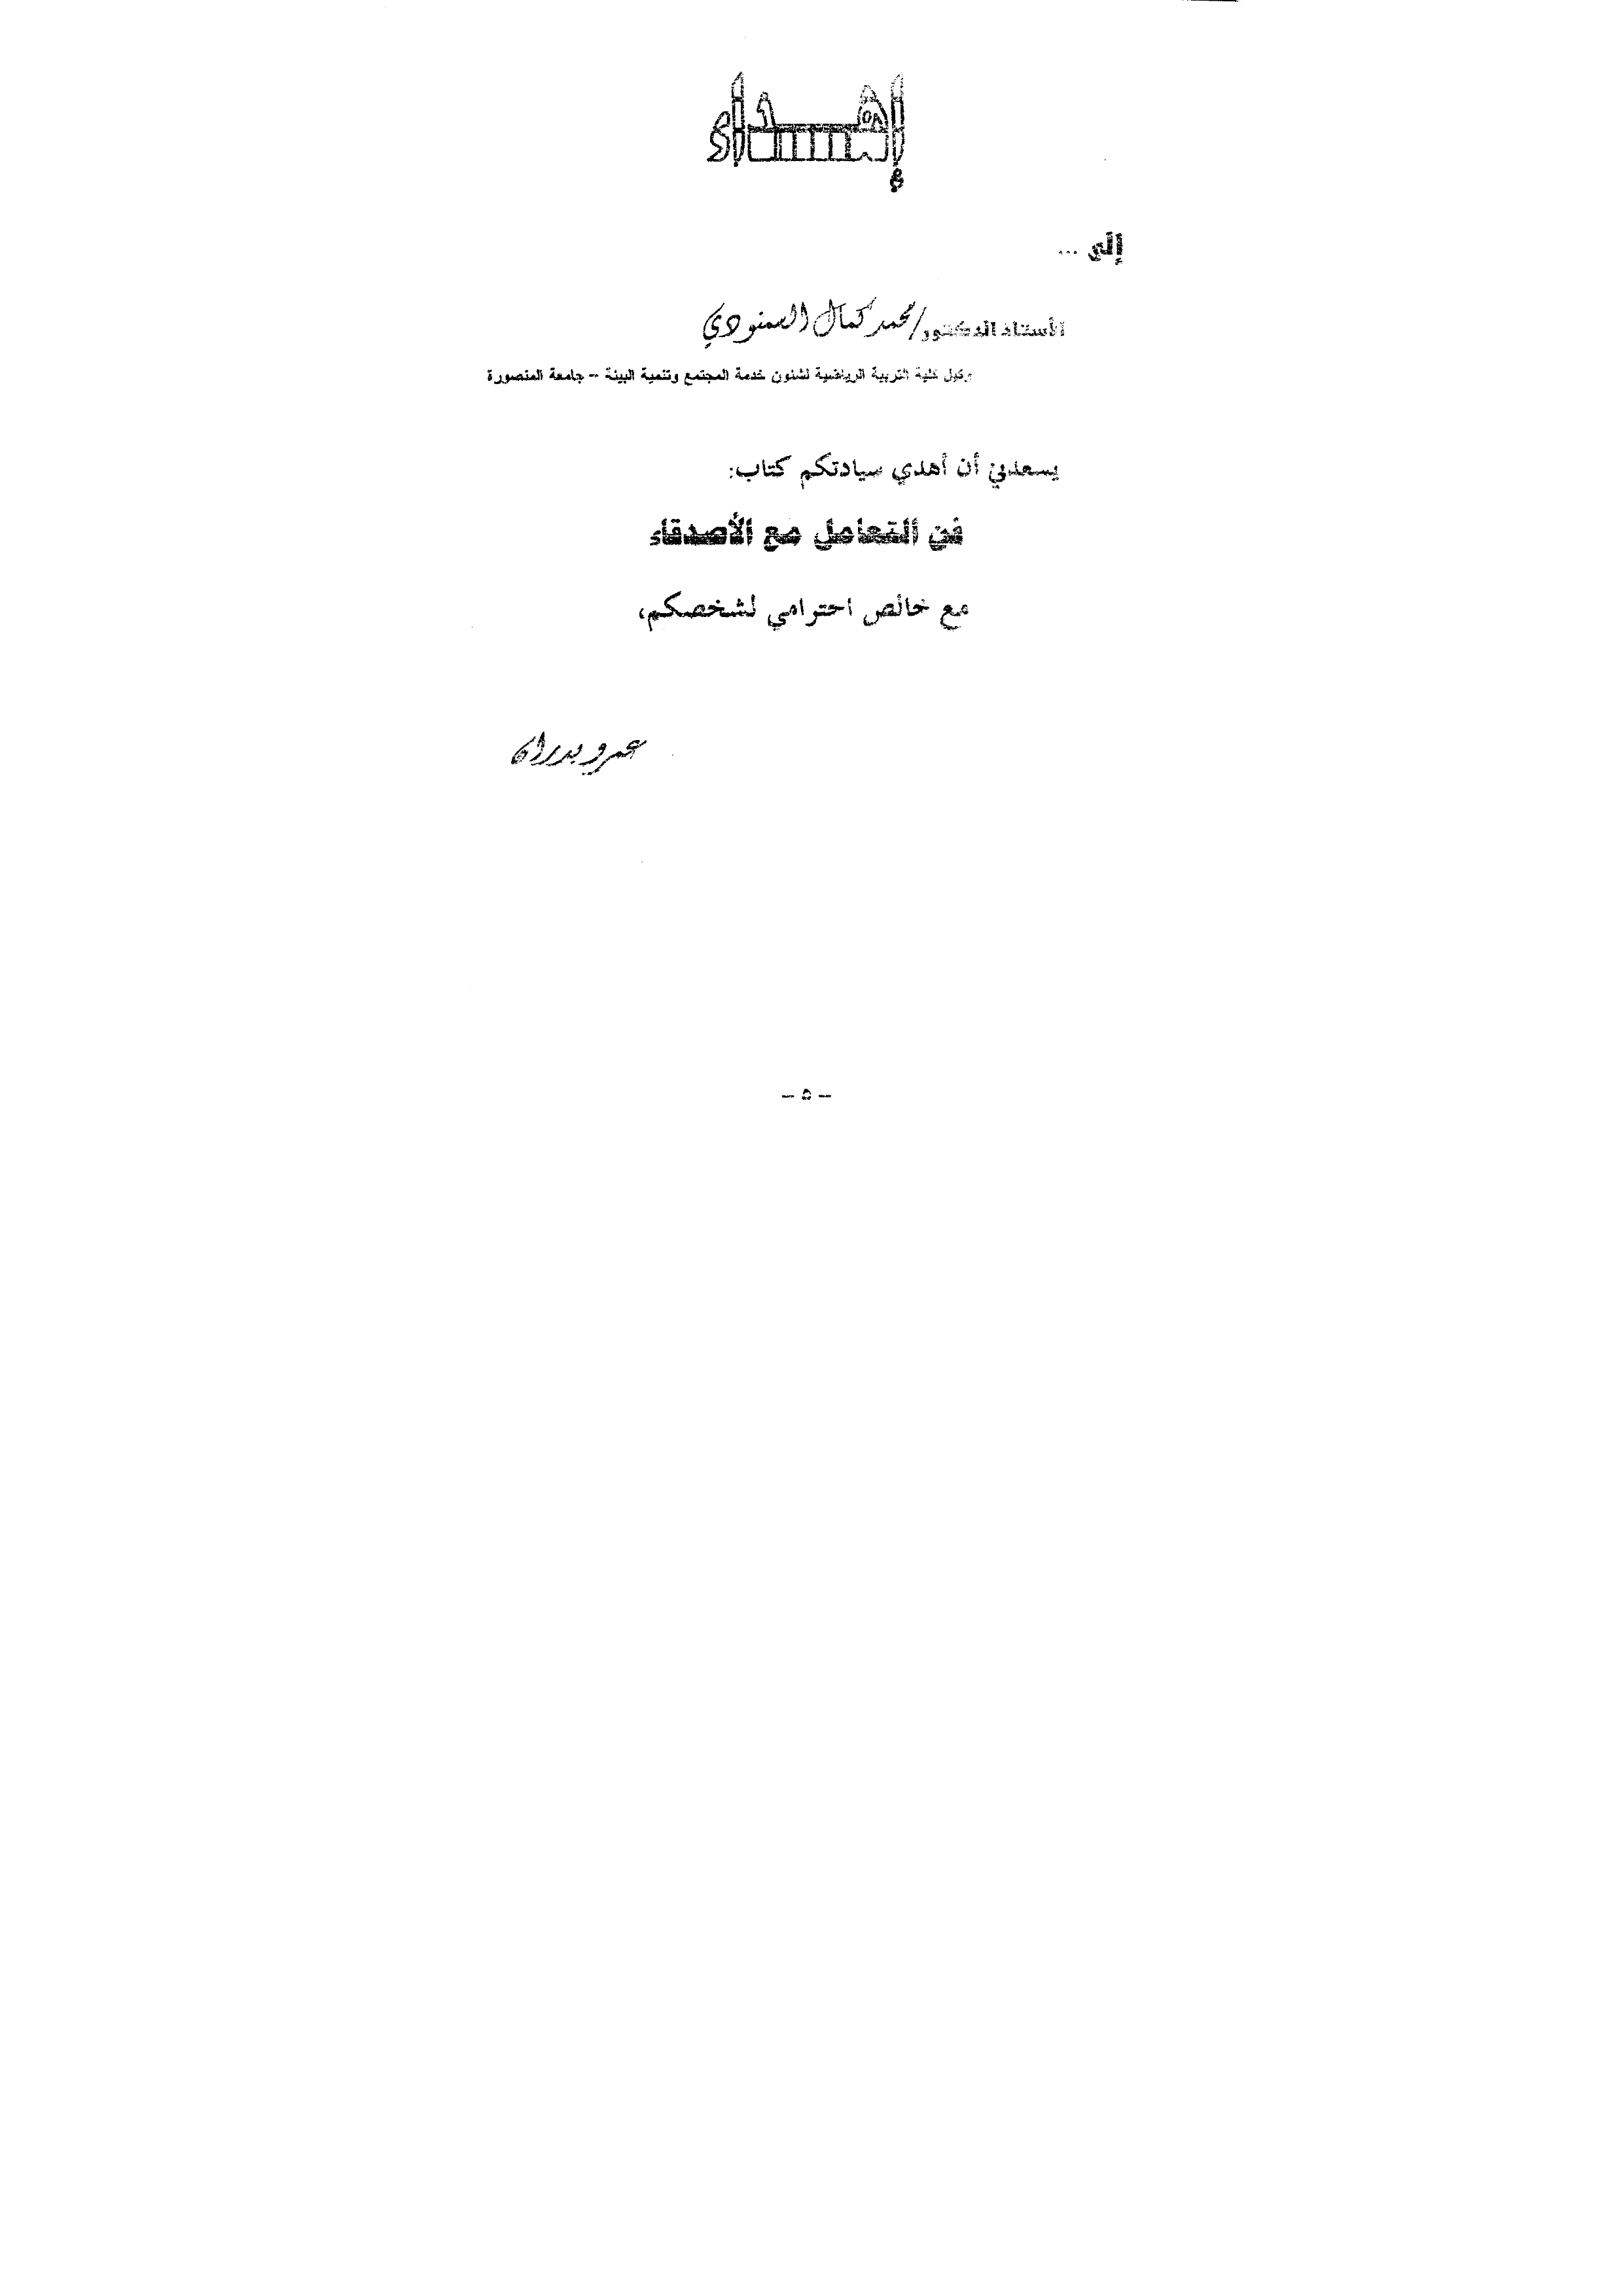 إهـــداء
إلى ...
الأستاذ الدكتور/محمد كمال السمنودي
وكيل كلية التربية الرياضية لشئون خدمة المجتمع وتنمية البيئة -- جامعة المنصورة
يسعدني أن أهدي سيادتكم كتاب:
فن التعامل مع الأصدقاء
مع خالص احترامي لشخصكم،
عمرو بدران
– ٥ –